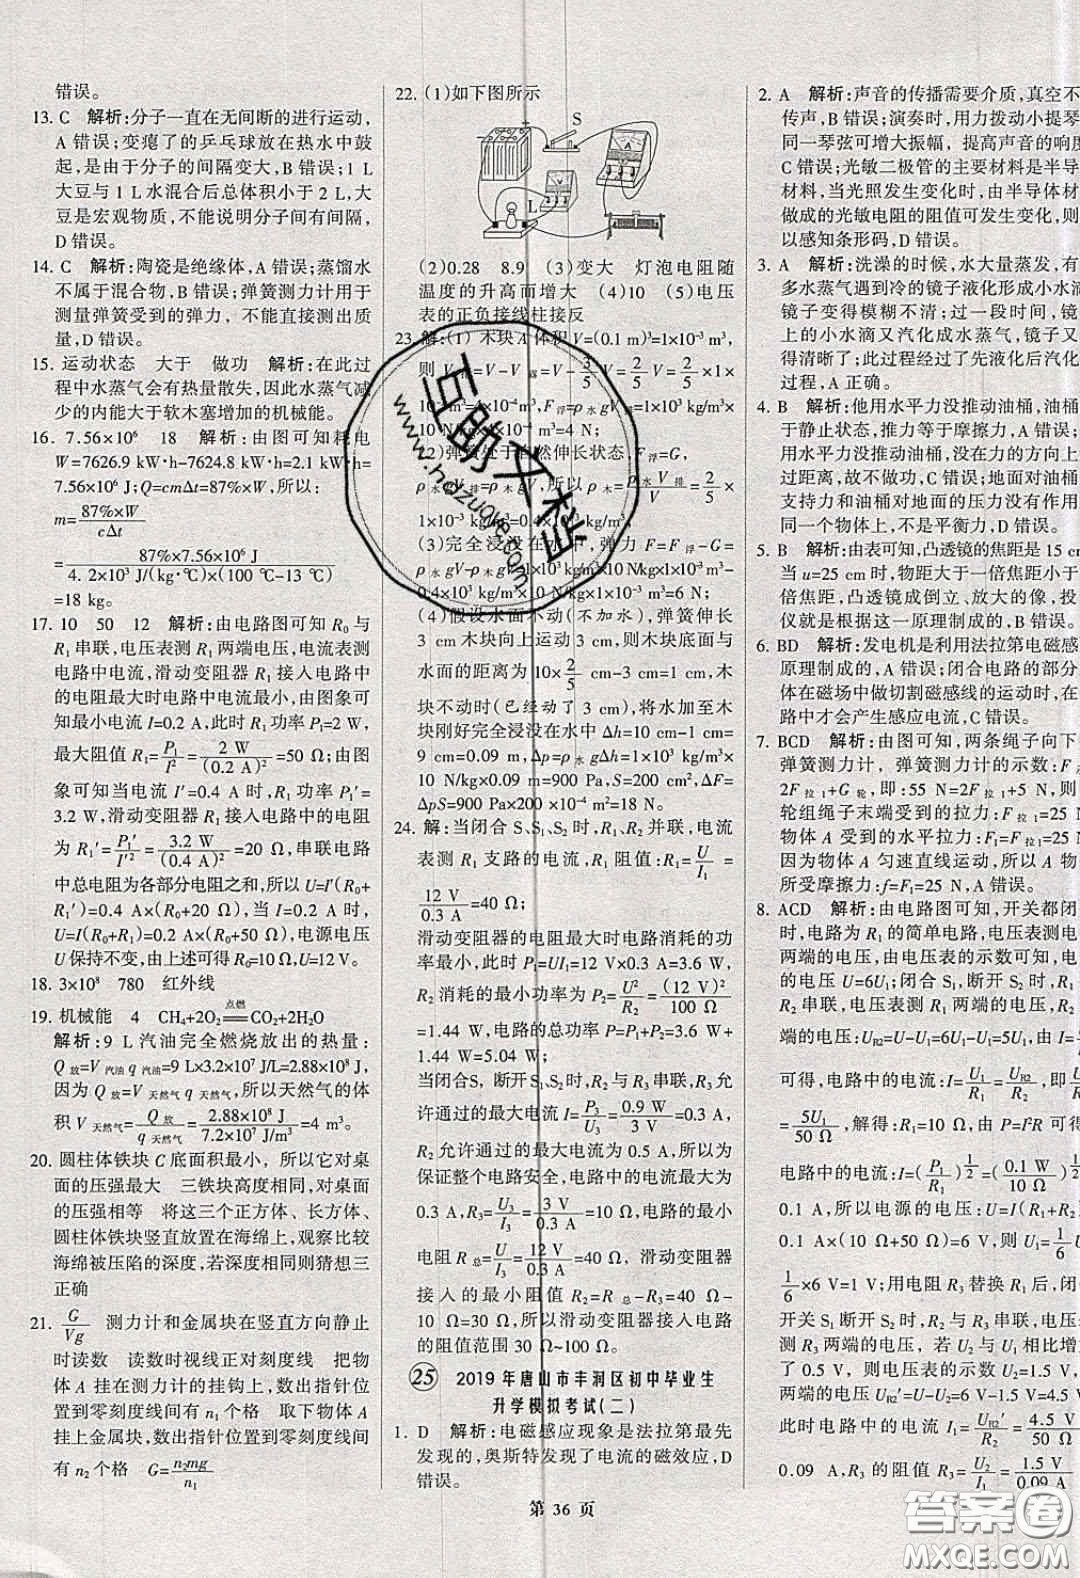 错误。
13. C 解析:分子一直在无间断的进行运动,
A 错误;变瘪了的乒乓球放在热水中鼓
起,是由于分子的间隔变大,B 错误;1 L
大豆与 1 L 水混合后总体积小于 2 L,大
豆是宏观物质,不能说明分子间有间隔,
D 错误。
14. C 解析:陶瓷是绝缘体,A 错误;蒸馏水
不属于混合物,B 错误;弹簧测力计用于
测量弹簧受到的弹力,不能直接测出质
量,D 错误。
15. 运动状态 大于 做功 解析:在此过
程中水蒸气会有热量散失,因此水蒸气减
少的内能大于软木塞增加的机械能。
16. 7.56×10⁶ 18 解析:由图可知耗电
W=7626.9 kW·h-7624.8 kW·h=2.1 kW·h=
7.56×10⁶ J;Q=cmΔt=87%×W,所以:
m=87%×W/cΔt
=87%×7.56×10⁶ J/4.2×10³ J/(kg·℃)×(100 ℃-13 ℃)
=18 kg。
17. 10 50 12 解析:由电路图可知 R₀ 与
R₁ 串联,电压表测 R₁ 两端电压,电流表测
电路中电流,滑动变阻器 R₁ 接入电路中
的电阻最大时电路中电流最小,由图象可
知最小电流 I=0.2 A,此时 R₁ 功率 P₁=2 W,
最大阻值 R₁=P₁/I²=2 W/(0.2 A)²=50 Ω;由图
象可知当电流 I′=0.4 A 时,R₁ 功率 P₁′=
3.2 W,滑动变阻器 R₁ 接入电路中的电阻
为 R₁′=P₁′/I′²=3.2 W/(0.4 A)²=20 Ω,串联电路
中总电阻为各部分电阻之和,所以 U=I′(R₀+
R₁′)=0.4 A×(R₀+20 Ω),当 I=0.2 A 时,
U=I(R₀+R₁)=0.2 A×(R₀+50 Ω),电源电压
U 保持不变,由上述可得 R₀=10 Ω,U=12 V。
18. 3×10⁸ 780 红外线
19. 机械能 4 CH₄+2O₂ 点燃 CO₂+2H₂O
解析:9 L 汽油完全燃烧放出的热量:
Q放=V汽油q汽油=9 L×3.2×10⁷ J/L=2.88×10⁸ J,
因为 Q放=V天然气q天然气,所以天然气的体
积 V天然气=Q放/q天然气=2.88×10⁸ J/7.2×10⁷ J/m³=4 m³。
20. 圆柱体铁块 C 底面积最小,所以它对桌
面的压强最大 三铁块高度相同,对桌面
的压强相等 将这三个正方体、长方体、
圆柱体铁块竖直放置在海绵上,观察比较
海绵被压陷的深度,若深度相同则猜想三
正确
21. G/Vg 测力计和金属块在竖直方向静止
时读数 读数时视线正对刻度线 把物
体 A 挂到测力计的挂钩上,数出指针位置
到零刻度线间有 n₁ 个格 取下物体 A
挂上金属块,数出指针位置到零刻度线间
有 n₂ 个格 G=n₂mg/n₁
22. (1)如下图所示
S
L
(2)0.28 8.9 (3)变大 灯泡电阻随
温度的升高而增大 (4)10 (5)电压
表的正负接线柱接反
23. 解:(1) 木块 A 体积 V=(0.1 m)³=1×10⁻³ m³,
则 V排=V-V露=V-3/5V=2/5V=2/5×1×
10⁻³ m³=4×10⁻⁴m³,F浮=ρ水gV排=1×10³ kg/m³×
10 N/kg×4×10⁻⁴ m³=4 N;
(2)弹簧处于自然伸长状态,F浮=G,
ρ水gV排=ρ木gV,所以 ρ木=ρ水V排/V=2/5×
1×10³ kg/m³=0.4×10³ kg/m³;
(3)完全浸没在水中,弹力 F=F浮-G=
ρ水gV-ρ木gV=1×10³ kg/m³×10 N/kg×1×10⁻³ m³-
0.4×10³ kg/m³×10 N/kg×1×10⁻³m³=6 N;
(4)假设水面不动(不加水),弹簧伸长
3 cm木块向上运动 3 cm,则木块底面与
水面的距离为 10×2/5 cm-3 cm=1 cm,木
块不动时(已经动了),将水加至木
块刚好完全浸没在水中 Δh=10 cm-1 cm=
9 cm=0.09 m,Δp=ρ水gΔh=1×10³ kg/m³×10
N/kg×0.09 m=900 Pa,S=200 cm²,ΔF=
ΔpS=900 Pa×200 ×10⁻⁴ m²=18 N。
24. 解:当闭合 S、S₁、S₂ 时,R₁、R₂ 并联,电流
表测 R₁ 支路的电流,R₁ 阻值:R₁=U/I₁=
12 V/0.3 A=40 Ω;
滑动变阻器的电阻最大时电路消耗的功
率最小,P₁=UI₁=12 V×0.3 A=3.6 W,
R₂ 消耗的最小功率为 P₂=U²/R₂=(12 V)²/100 Ω
=1.44 W,电路的总功率 P=P₁+P₂=3.6 W+
1.44 W=5.04 W;
当闭合S,断开 S₁、S₂时,R₂与 R₃串联,R₃允
许通过的最大电流 I=P₃/U₃=0.9 W/3 V=0.3 A,
R₂ 允许通过的最大电流为 0.5 A,所以为
保证整个电路安全,电路中的电流最大为
0.3 A,R₃=U₃/I₃=3 V/0.3 A=10 Ω,电路的最小
电阻 R总=U/I=12 V/0.3 A=40 Ω,滑动变阻器
接入的最小阻值 R滑=R总-R₃=40 Ω
-10 Ω=30 Ω,所以滑动变阻器接入电路
的阻值范围 30 Ω~100 Ω。
25 2019 年唐山市丰润区初中毕业生
升学模拟考试(二)
1. D 解析:电磁感应现象是法拉第最先
发现的,奥斯特发现了电流的磁效应,D
错误。
2. A 解析:声音的传播需要介质,真空不
传声,B 错误;演奏时,用力拨动小提琴
同一琴弦可增大振幅,提高声音的响度
C 错误;光敏二极管的主要材料是半导
材料,当光照发生变化时,由半导体材
做成的光敏电阻的阻值可发生变化,
以感知条形码,D 错误。
3. A 解析:洗澡的时候,水大量蒸发,有
多水蒸气遇到冷的镜子液化形成小水滴
镜子变得模糊不清;过一段时间,镜
上的小水滴又汽化成水蒸气,镜子变
得清晰了;此过程经过了先液化后汽化
过程,A 正确。
4. B 解析:他用水平力没推动油桶,油桶
于静止状态,推力等于摩擦力,A 错误
用水平力没推动油桶,在力的方向上
过距离,故不做功,C 错误;地面对油桶
支持力和油桶对地面的压力没有作用
同一个物体上,不是平衡力,D 错误。
5. B 解析:由表可知,凸透镜的焦距是 15 cm
当 u=25 cm时,物距大于一倍焦距小于
倍焦距,凸透镜成倒立、放大的像,投
仪就是根据这一原理制成的,B 错误。
6. BD 解析:发电机是利用法拉第电磁感
原理制成的,A 错误;闭合电路的部分
体在磁场中做切割磁感线的运动时,在
路中才会产生感应电流,C 错误。
7. BCD 解析:由图可知,两条绳子向下
弹簧测力计,弹簧测力计的示数:F=
2F拉1+G轮,即:55 N=2F拉1+5 N,则
轮组绳子末端受到的拉力:F拉1=25 N
物体 A 受到的水平拉力:F₁=F拉1=25 N
因为物体 A 匀速直线运动,所以 A 物
所受摩擦力:f=F₁=25 N,A 错误。
8. ACD 解析:由电路图可知,开关都闭
时,电路为 R₁ 的简单电路,电压表测
两端的电压,由电压表的示数可知,电
的电压:U=6U₁;闭合S,断开 S₁ 时,R₁、
R₂ 串联,电压表测 R₁ 两端的电压,R₂
端的电压:U_R2=U-U₁=6U₁-U₁=5U₁,由 I=
可得,电路中的电流:I=U₁/R₁=U_R2/R₂,即
=5U₁/50 Ω,解得:R₁=10 Ω,由 P=I²R 可得
电路中的电流:I=(P₁/R₁)^1/2=(0.1 W/10 Ω)^1/2=
0.1 A,所以电源的电压:U=I(R₁+R₂)
0.1 A×(10 Ω+50 Ω)=6 V,则 U₁=1/6U
1/6×6 V=1 V;用电阻 R₃ 替换 R₁后,闭
开关 S₁断开 S₂时,R₃、R₂ 串联,电压表
R₃ 两端的电压,若电压表的示数变
了 0.5 V,所以电压表的示数 U₃=1.5 V
此时电路中的电流:I₃=U_R2′/R₂=4.5 V/50 Ω
0.09 A,R₃ 的阻值 R₃=U₂/I₁=1.5 V/0.09 A
第 36 页
互助文档
www.hdzuoye.com
答案圈
MXQE.COM